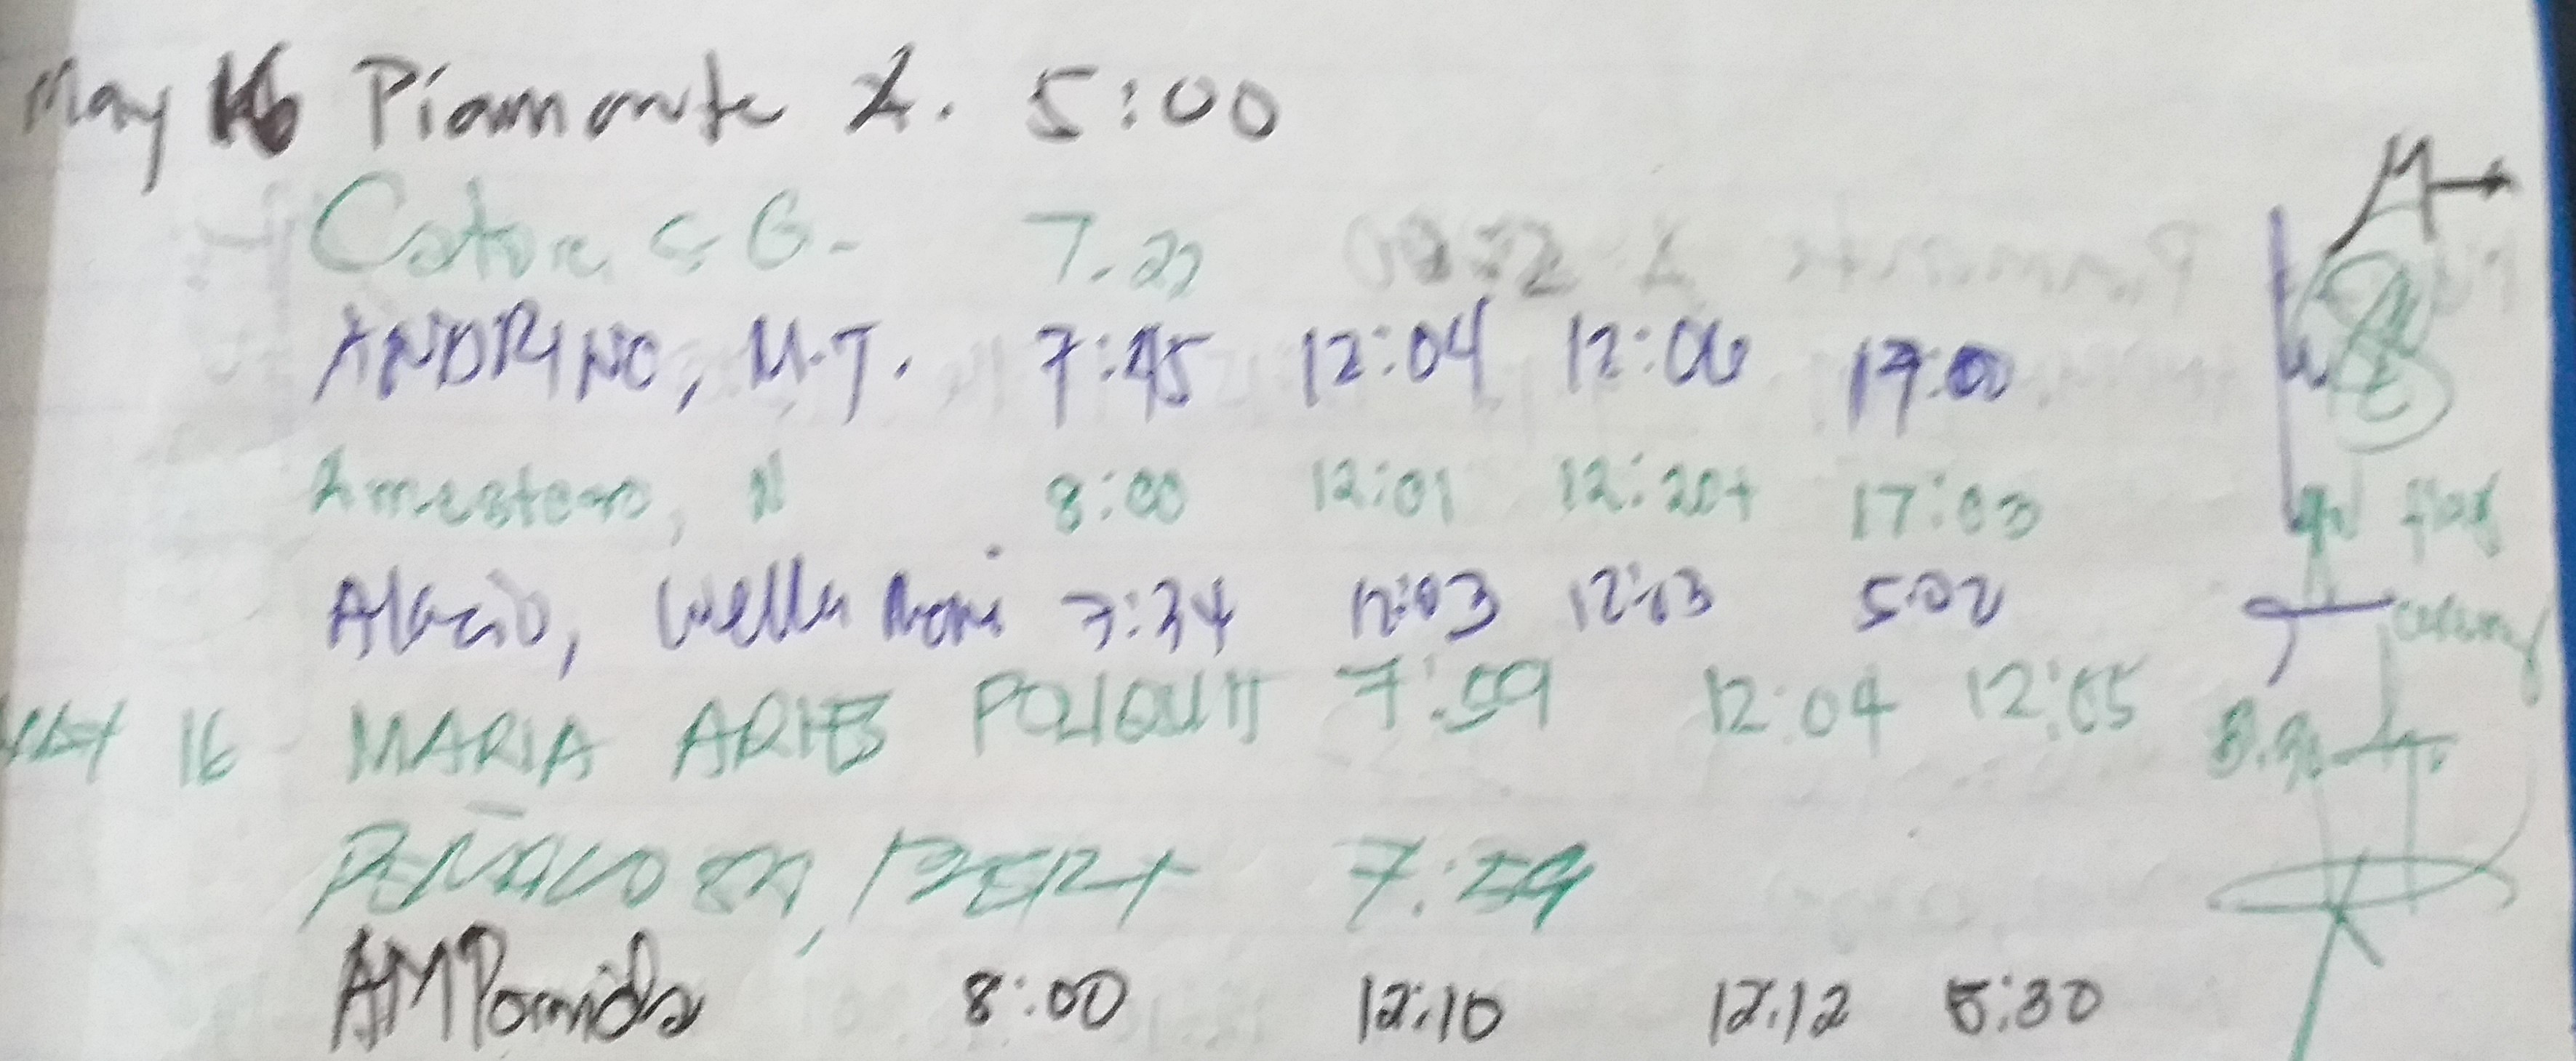 May 16 Piamonte Z. 5:00
G. 7.27
ANDRINO, M.T. 7:45 12:04 12:06 17:00
Amestoso, N 8:00 12:01 12:20+ 17:03
Alacio, Wella Romi 7:34 12:03 12:13 5:02
May 16 MARIA ARIES POLIQUIT 7:59 12:04 12:05
PEÑALOSA, BERT 7:59
AMPomida 8:00 12:10 12:12 5:30
flag